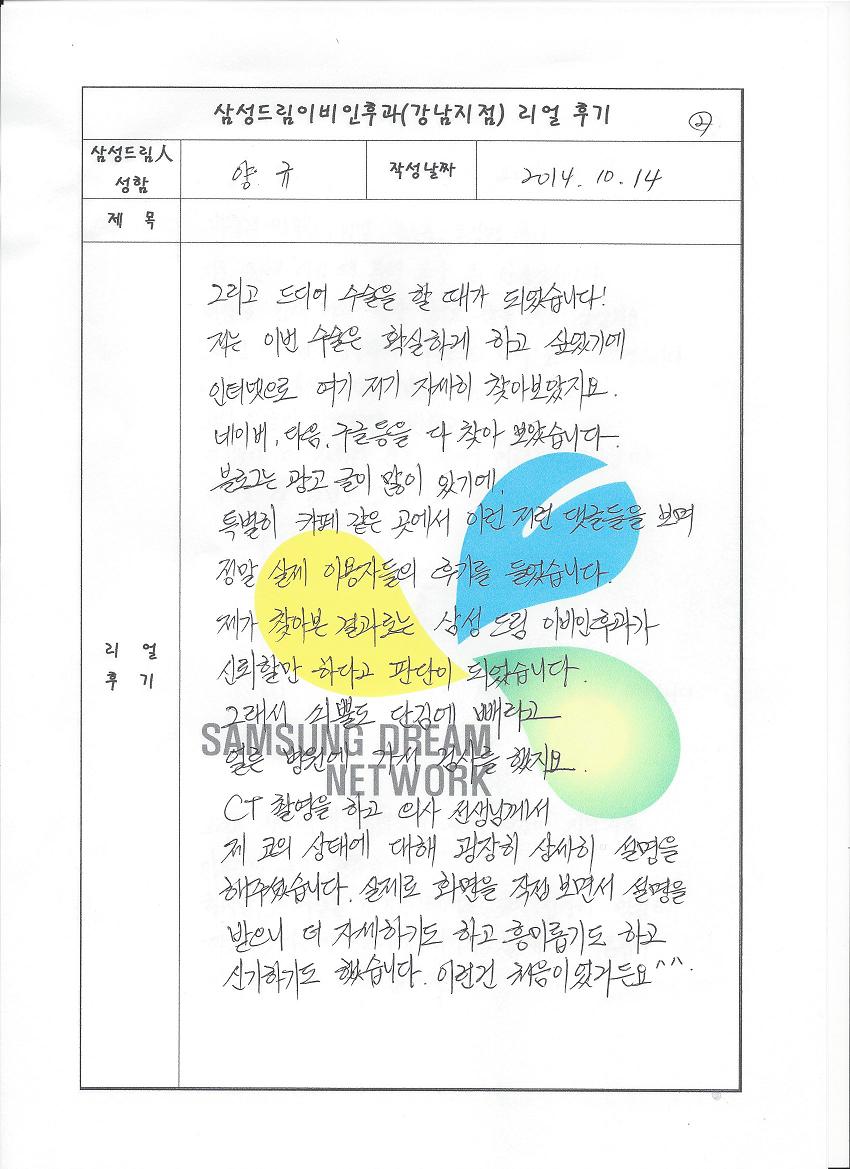 삼성드림이비인후과(강남지점) 리얼 후기 ②
삼성드림人 성함 양 규 작성날짜 2014. 10. 14
제 목
리 얼 후 기
그리고 드디어 수술을 할 때가 되었습니다!
저는 이번 수술은 확실하게 하고 싶었기에
인터넷으로 여기 저기 자세히 찾아보았지요.
네이버, 다음, 구글 등을 다 찾아 보았습니다.
블로그는 광고 글이 많이 있기에,
특별히 카페 같은 곳에서 이런 저런 댓글들을 보며
정말 실제 이용자들의 후기를 들었습니다.
제가 찾아본 결과로는 삼성 드림 이비인후과가
신뢰할만 하다고 판단이 되었습니다.
그래서 쇠뿔도 단김에 빼라고
얼른 병원에 가서 검사를 했지요.
SAMSUNG DREAM
NETWORK
CT 촬영을 하고 의사 선생님께서
제 코의 상태에 대해 굉장히 상세히 설명을
해주셨습니다. 실제로 화면을 직접 보면서 설명을
받으니 더 자세하기도 하고 흥미롭기도 하고
신기하기도 했습니다. 이런건 처음이었거든요^^.